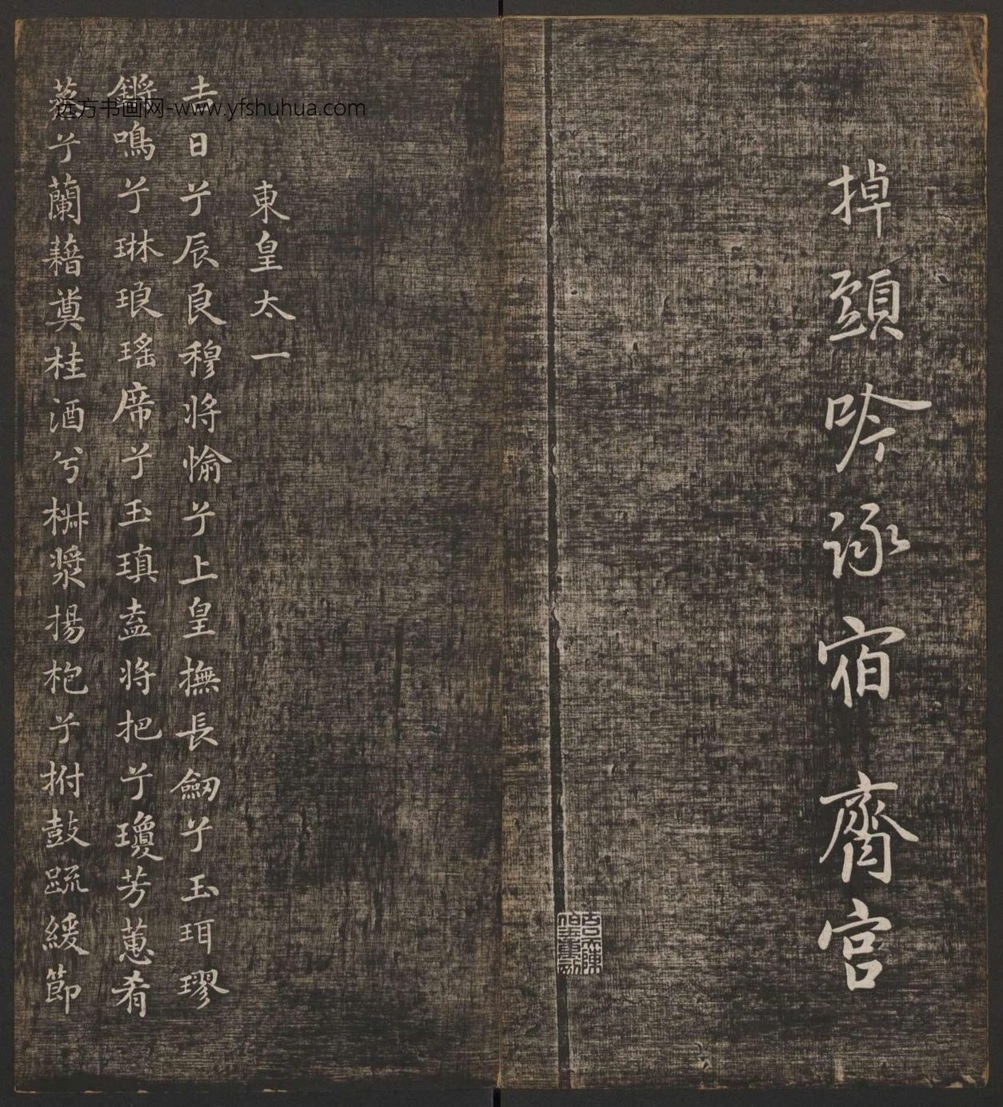 掉頭吟詠宿齋宮
東皇太一
吉日兮辰良穆將愉兮上皇撫長劒兮玉珥璆
鏘鳴兮琳琅瑤席兮玉瑱盍將把兮瓊芳蕙肴
蒸兮蘭藉奠桂酒兮椒漿揚枹兮拊鼓疏緩節
远方书画网-www.yfshuhua.com